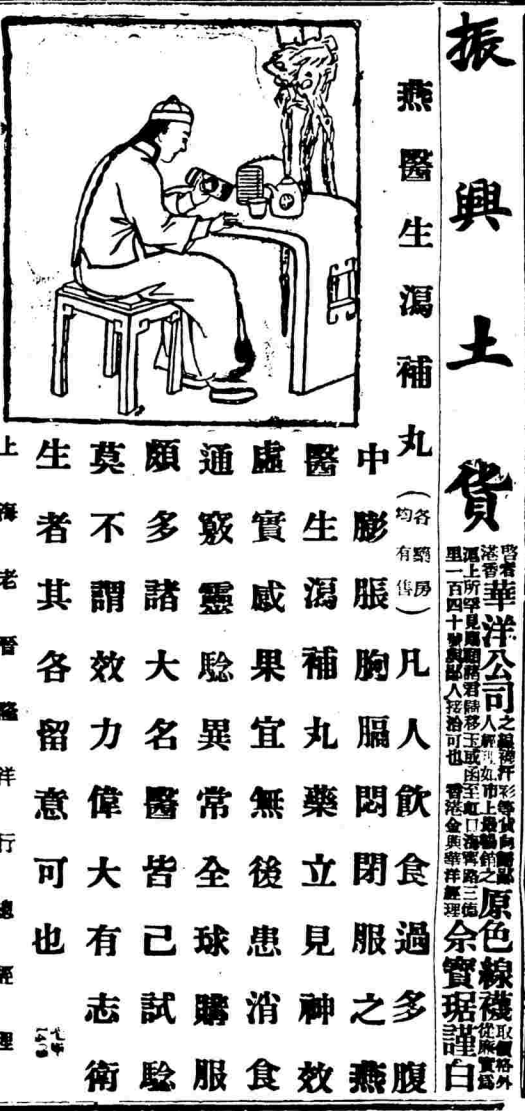 振興土貨
啓者
港香華洋公司之線襪汗衫等貨向歸鄙人經理如市上最暢銷之原色線襪取價格外從廉實爲
滬上所罕見
里一百四十號與鄙人接洽可也 香港金興華洋經理余寶琚謹白
燕醫生瀉補丸(各藥房均有售)凡人飲食過多腹
中膨脹胸膈悶閉服之燕
醫生瀉補丸藥立見神效
虛實感果宜無後患消食
通竅靈騐異常全球購服
頗多諸大名醫皆已試騐
莫不謂效力偉大有志衛
生者其各留意可也
上海老晉隆洋行總經理